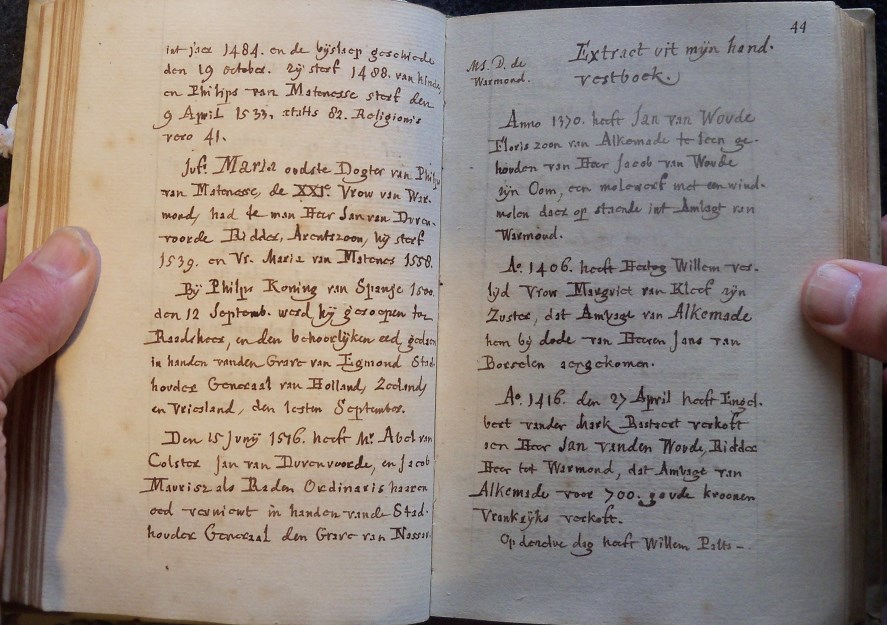 int jaer 1484. en de bijslaep geschiede
den 19 october. zij sterf 1488. van kinde,
en Philips van Matenesse sterf den
9 April 1533, ætatis 82. Religionis
vero 41.
Jufr. Maria oudste Dogter van Philips
van Matenesse, de XXIe. Vrow van War-
mond, had te man Heer Jan van Duven-
voorde Ridder, Arentszoon, hij sterf
1539. en Vr. Maria van Matenes 1558.
Bij Philps Koning van Spanje
den 12 Septemb. werd hij geroepen tot
Raedsheer, en den behoorlijken eed gedaen
in handen vanden Grave van Egmond Stad
houder Generaal van Holland, Zeeland,
en Vriesland, den lesten September.
Den 15 Junij 1576. heeft Mr. Abel van
Colster Jan van Duvenvoorde, en Jacob
Maurisz als Raden Ordinaris haaren
eed verniewt in handen vande Stad-
houder Generaal den Grave van Nassau.
44
MS. D. de
Warmond.
Extract uit mijn hand.
vestboek.
Anno 1370. heeft Jan van Woude
Floris zoon van Alkemade te leen ge-
houden van Heer Jacob van Woude
zijn Oom, een molewerf met een wind-
molen daer op staende int Ambagt van
Warmond.
Ao. 1406. heeft Hertog Willem ver-
lyd Vrow Margriet van Kleef zijn
Zuster, dat Ambagt van Alkemade
hem bij dode van Heeren Jans van
Borselen aengekomen.
Ao. 1416. den 27 April heeft Engel-
bert vander Mark Bastaert verkoft
aen Heer Jan vanden Woude, Ridder
Heer tot Warmond, dat Ambagt van
Alkemade voor 700. goude kroonen
Vrankrijks verkoft.
Op denselve dag heeft Willem